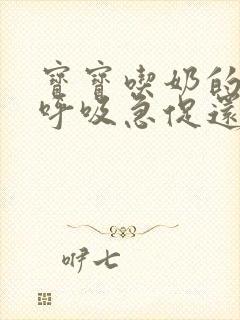 寶寶喫奶的
呼吸急促還
咿七